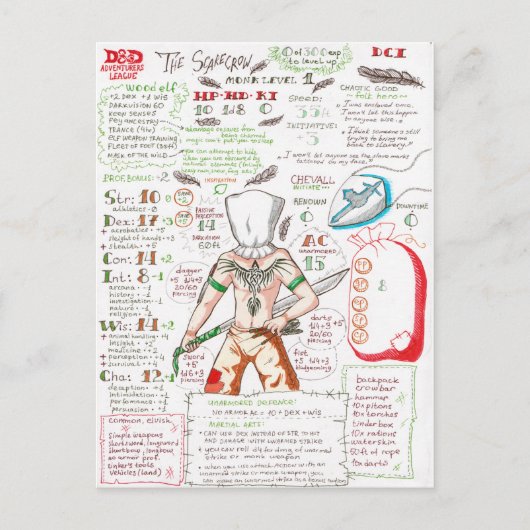 D&D
ADVENTURERS
LEAGUE
THE SCARECROW
MONK LEVEL 1
0 of 300 exp
to level up
DCI
Wood elf
+2 Dex +1 Wis
Darkvision 60
keen senses
Fey ancestry
TRANCE (4hr)
ELF WEAPON TRAINING
FLEET OF FOOT (35ft)
MASK OF THE WILD
HP·HD·KI
10 1d8 0
SPEED:
35ft
INITIATIVE:
+3
CHAOTIC GOOD
folk hero
I was enslaved once.
I won't let this happen
to anyone else.
I think someone is still
trying to bring me
back to slavery.
I won't let anyone see the slave marks
tattooed on my face.
advantage on saves from
being charmed
magic can't put you to sleep
you can attempt to hide
when you are obscured by
natural elements
INSPIRATION
PROF. BONUS: +2
Str: 10 0
athletics · 0
Dex: 17 +3
acrobatics · +5
sleight of hand · +3
stealth · +5
Con: 14 +2
Int: 8 -1
arcana · -1
history · -1
investigation · -1
nature · -1
religion · -1
Wis: 14 +2
animal handling · +4
insight · +2
medicine · +2
perception · +4
survival · +4
Cha: 12 +1
deception · +1
intimidation · +1
performance · +1
persuasion · +1
SAVE
+2
SAVE
+5
PASSIVE
PERCEPTION
14
DARKVISION
60ft
CHEVALL
INITIATE
RENOWN
0
DOWNTIME
0
AC
unarmored
15
dagger
+5
1d4+3
20/60
piercing
darts
+5
1d4+3
20/60
piercing
sword
+5
1d6+3
piercing
fist
+5
1d4+3
bludgeoning
CP
SP
EP
GP
8
PP
common, elvish
simple weapons
shortsword, longsword
shortbow, longbow
no armor prof.
tinker's tools
vehicles (land)
UNARMORED DEFENCE:
NO ARMOR AC = 10 + DEX + WIS
MARTIAL ARTS:
• CAN USE DEX INSTEAD OF STR TO HIT
AND DAMAGE WITH UNARMED STRIKE
• you can roll d4 for dmg of unarmed
strike or monk weapon
• when you use attack action with an
unarmed strike or monk weapon, you
can make an unarmed strike as a bonus action
backpack
crowbar
hammer
10x pitons
10x torches
tinderbox
10x rations
waterskin
50ft of rope
10x darts